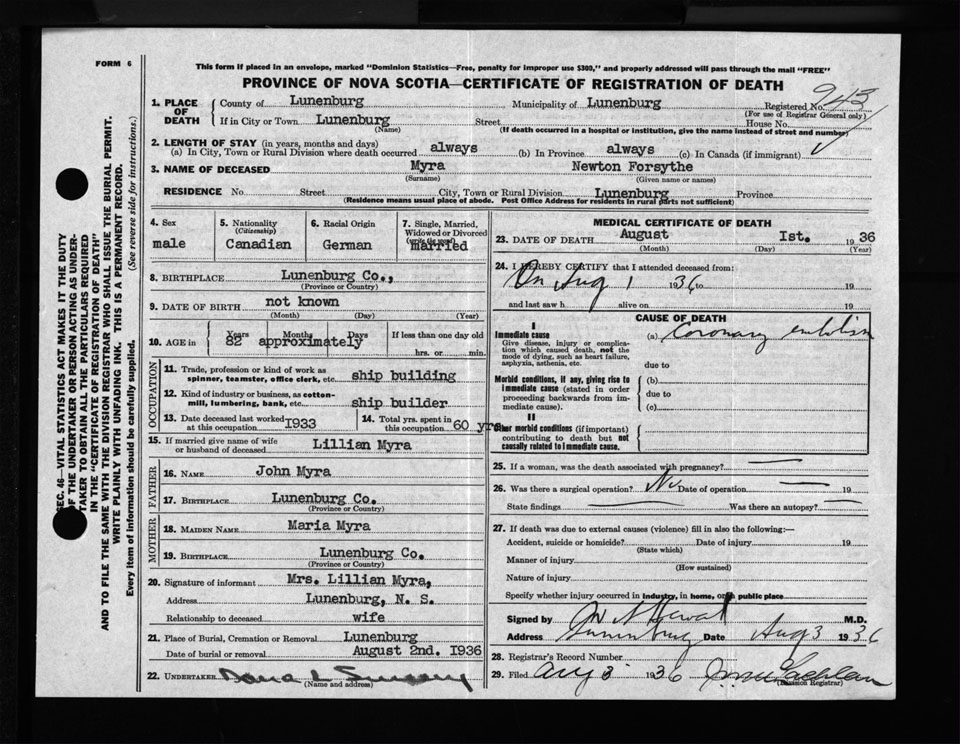 FORM 6
This form if placed in an envelope, marked "Dominion Statistics—Free, penalty for improper use $300," and properly addressed will pass through the mail "FREE"
PROVINCE OF NOVA SCOTIA—CERTIFICATE OF REGISTRATION OF DEATH
943
1. PLACE OF DEATH County of Lunenburg Municipality of Lunenburg Registered No.
(For use of Registrar General only)
If in City or Town Lunenburg Street House No.
(Name) (If death occurred in a hospital or institution, give the name instead of street and number)
2. LENGTH OF STAY (in years, months and days)
(a) In City, Town or Rural Division where death occurred always (b) In Province always (c) In Canada (if immigrant)
3. NAME OF DECEASED Myra Newton Forsythe
(Surname) (Given name or names)
RESIDENCE No. Street City, Town or Rural Division Lunenburg Province
(Residence means usual place of abode. Post Office Address for residents in rural parts not sufficient)
4. Sex 5. Nationality (Citizenship) 6. Racial Origin 7. Single, Married, Widowed or Divorced (write the word)
male Canadian German married
8. BIRTHPLACE Lunenburg Co.,
(Province or Country)
9. DATE OF BIRTH not known
(Month) (Day) (Year)
10. AGE in Years Months Days If less than one day old
82 approximately hrs. or min.
OCCUPATION
11. Trade, profession or kind of work as
spinner, teamster, office clerk, etc. ship building
12. Kind of industry or business, as cotton-
mill, lumbering, bank, etc. ship builder
13. Date deceased last worked at this occupation 1933 14. Total yrs. spent in this occupation 60 yrs.
15. If married give name of wife
or husband of deceased Lillian Myra
FATHER
16. NAME John Myra
17. BIRTHPLACE Lunenburg Co.
(Province or Country)
MOTHER
18. MAIDEN NAME Maria Myra
19. BIRTHPLACE Lunenburg Co.
(Province or Country)
20. Signature of informant Mrs. Lillian Myra,
Address Lunenburg, N. S.
Relationship to deceased wife
21. Place of Burial, Cremation or Removal Lunenburg
Date of burial or removal August 2nd. 1936
22. UNDERTAKER
(Name and address)
MEDICAL CERTIFICATE OF DEATH
23. DATE OF DEATH August Ist. 1936
(Month) (Day) (Year)
24. I HEREBY CERTIFY that I attended deceased from:
On Aug 1 1936 to 19
and last saw h alive on 19
CAUSE OF DEATH
I
Immediate cause (a) Coronary
Give disease, injury or complica-
tion which caused death, not the
mode of dying, such as heart failure,
asphyxia, asthenia, etc. due to
Morbid conditions, if any, giving rise to (b)
immediate cause (stated in order due to
proceeding backwards from im-
mediate cause). (c)
II
Other morbid conditions (if important)
contributing to death but not
causally related to immediate cause.
25. If a woman, was the death associated with pregnancy?
26. Was there a surgical operation? No Date of operation 19
State findings Was there an autopsy?
27. If death was due to external causes (violence) fill in also the following:—
Accident, suicide or homicide? Date of injury 19
(State which)
Manner of injury
(How sustained)
Nature of injury
Specify whether injury occurred in industry, in home, or in public place
Signed by M.D.
Address Lunenburg Date Aug 3 1936
28. Registrar's Record Number
29. Filed Aug 3 1936
(Division Registrar)
SEC. 46—VITAL STATISTICS ACT MAKES IT THE DUTY
OF THE UNDERTAKER OR PERSON ACTING AS UNDER-
TAKER TO OBTAIN ALL THE PARTICULARS REQUIRED
IN THE "CERTIFICATE OF REGISTRATION OF DEATH"
AND TO FILE THE SAME WITH THE DIVISION REGISTRAR WHO SHALL ISSUE THE BURIAL PERMIT.
WRITE PLAINLY WITH UNFADING INK. THIS IS A PERMANENT RECORD.
Every item of information should be carefully supplied. (See reverse side for instructions.)